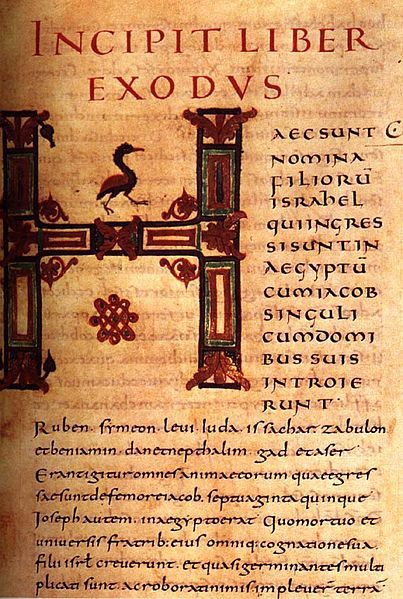 INCIPIT LIBER
EXODVS
HAEC SUNT
NOMINA
FILIORŪ
ISRAHEL
QUIINGRES
SISUNTIN
AEGYPTŪ
CUMIACOB
SINGULI
CUMDOMI
BUS SUIS
INTROIE
RUNT
Ruben. symeon. levi. Iuda. issachar. zabulon
etbeniamin. danetnepthalim. gad. etaser
Erantigituromnesanimaeeorum quaeegres
saesuntdefemoreiacob. septuaginta quinque
Ioseph autem. inaegyptoerat Quomortuo et
universis fratrib; eius omniq; cognationesua.
filii isrł creverunt. et quasigerminantes multi
plicati sunt. acroboratinimis implever̄ terrā